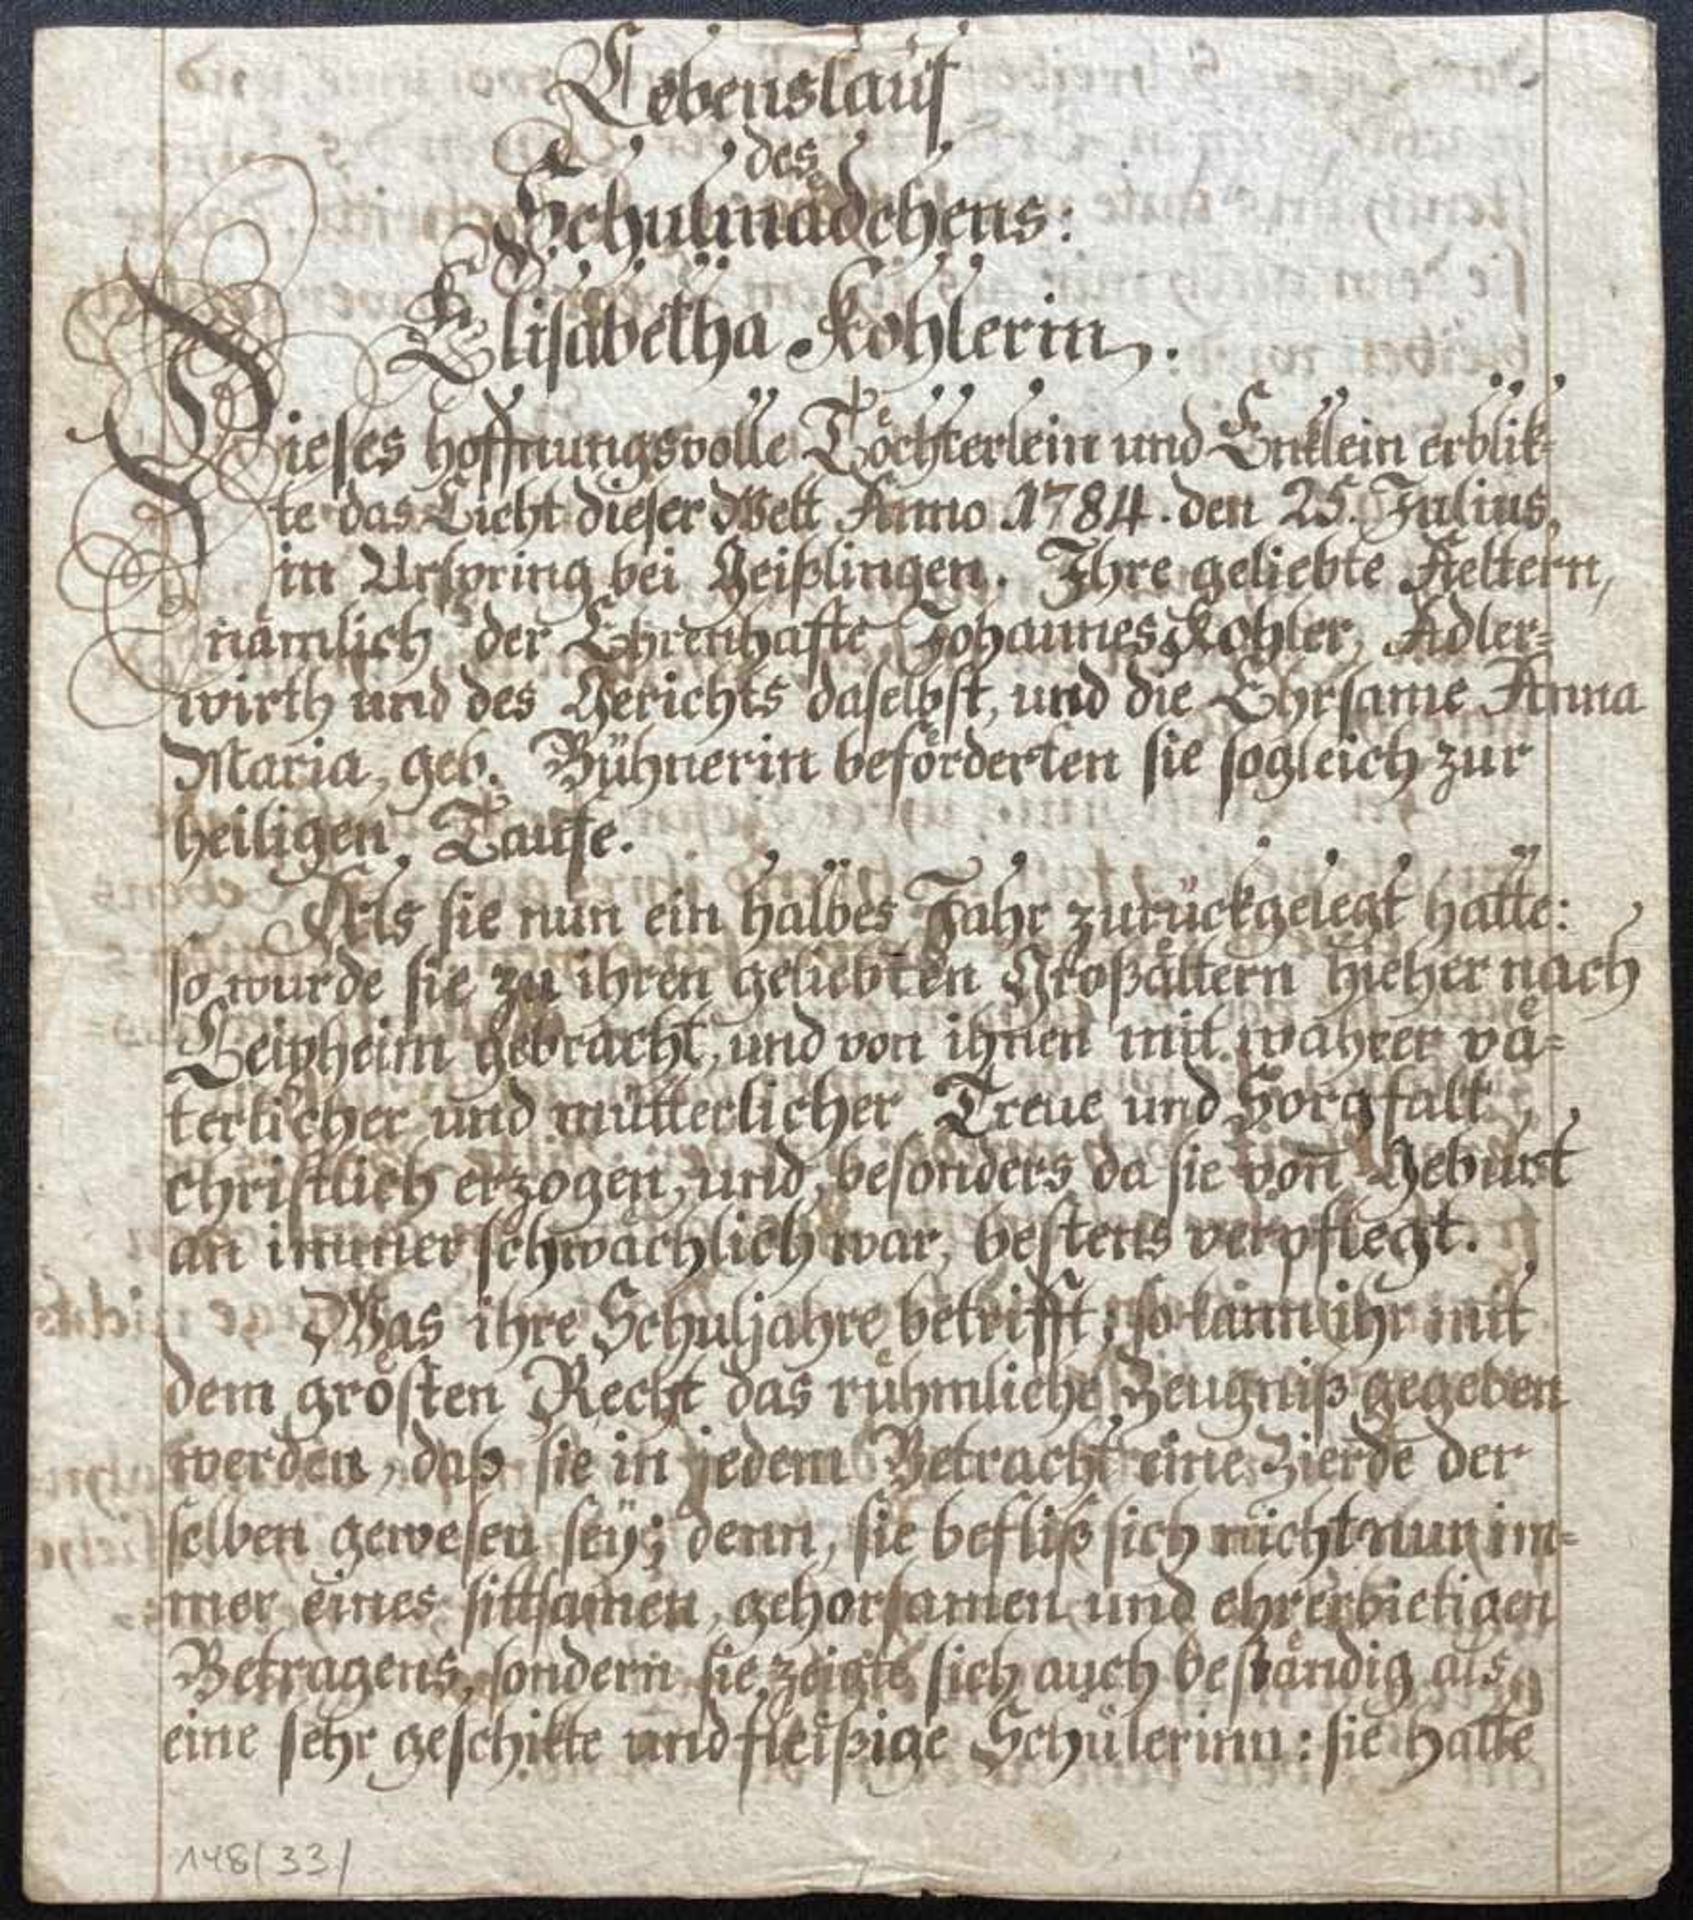 Lebenslauf
des
Schulmädchens:
Elisabetha Kohlerin.
Dieses hoffnungsvolle Töchterlein und Enklein erblik-
te das Licht dieser Welt Anno 1784. den 25. Julius,
in Urspring bei Geißlingen. Ihre geliebte Aeltern,
nämlich der Ehrenhafte Johannes Kohler, Adler-
wirth und des Gerichts daselbst, und die Ehrsame Anna
Maria, geb. Bühnerin beförderten sie sogleich zur
heiligen Taufe.
Als sie nun ein halbes Jahr zurückgelegt hatte:
so wurde sie zu ihren geliebten Großältern hieher nach
Leipheim gebracht, und von ihnen mit wahrer vä-
terlicher und mütterlicher Treue und Sorgfalt,
christlich erzogen, und, besonders da sie von Geburt
an immer schwächlich war, bestens verpflegt.
Was ihre Schuljahre betrifft; so kann ihr mit
dem grösten Recht das rühmliche Zeugniß gegeben
werden, daß sie in jedem Betracht eine Zierde der
selben gewesen seÿ; denn, sie befliß sich nicht nur im-
mer eines sittsamen, gehorsamen und ehrerbietigen
Betragens, sondern sie zeigte sich auch beständig als
eine sehr geschikte und fleißige Schülerinn: sie hatte
148/33/